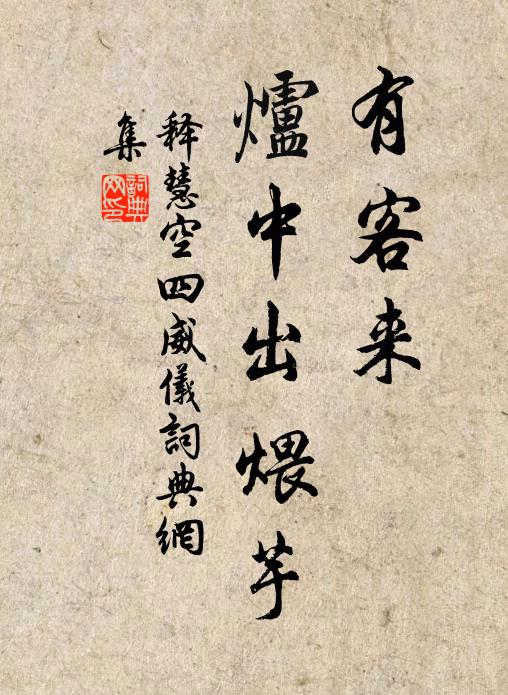 有客来
爐中出煨芋
释慧空四威儀詞典網
集
詞典
网印